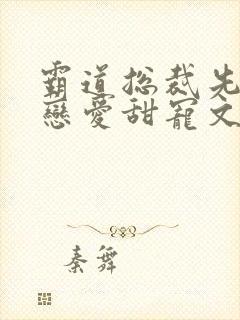 霸道總裁先
戀愛甜寵文
秦舞